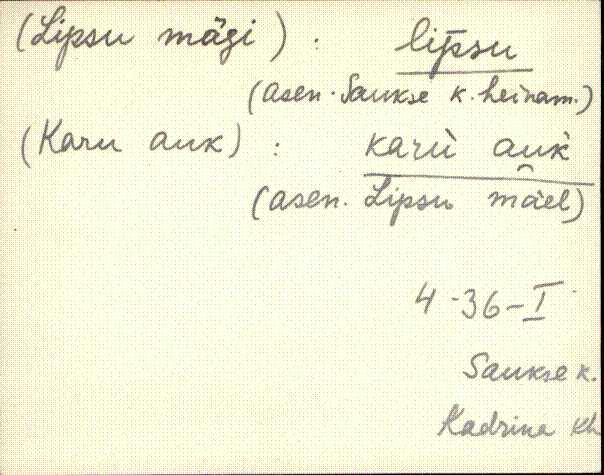 (Lipsu mägi) : lip̄su
(asen. Saukse k. heinam.)
(Karu auk) : karù auk̀
(asen. Lipsu mäel)
4-36-I
Saukse k.
Kadrina kh